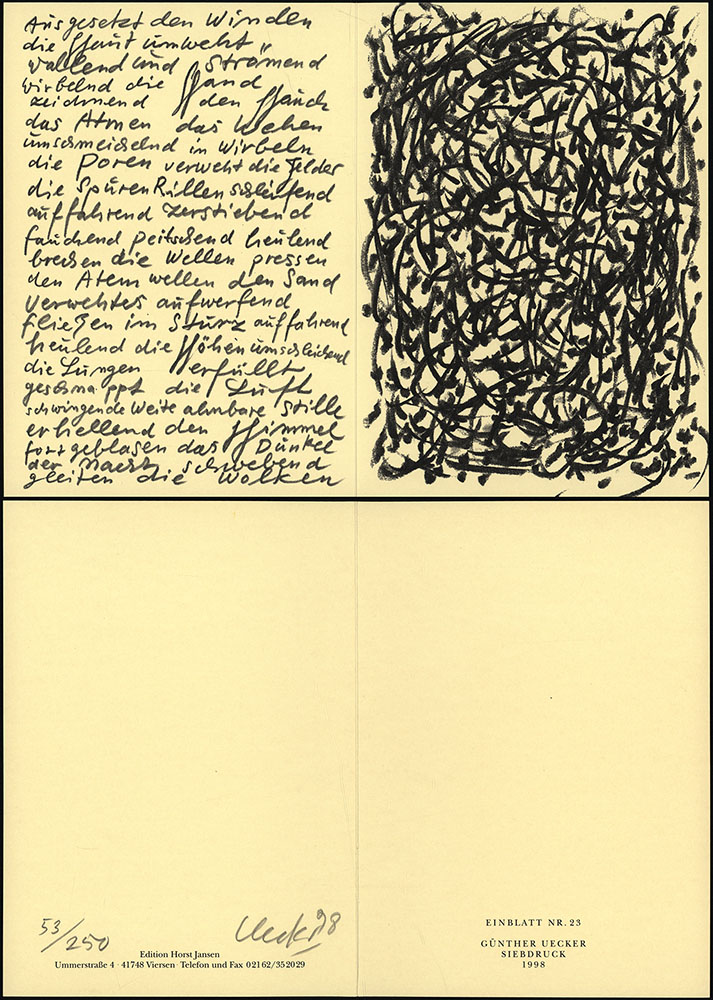 Ausgesetzt den Winden
die Haut umweht
wallend und strömend
wirbelnd die Hand
zeichnend den Hauch
das Atmen das Wehen
umschmeichelnd in Wirbeln
die Poren verweht die Felder
die Spüren Rillen schleifend
auffahrend zerstiebend
fauchend peitschend heulend
brechen die Wellen pressen
den Atem wellen den Sand
Verwehtes aufwerfend
fließen im Sturz auffahrend
heulend die Höhen umschleichend
die Lungen erfüllt
geschnappt die Luft
schwingende Weite ahnbare Stille
erhellend den Himmel
fortgeblasen das Dunkel
der Nacht schwebend
gleiten die Wolken
53/250
Uecker 98
Edition Horst Jansen
Ummerstraße 4 · 41748 Viersen · Telefon und Fax 02162/352029
EINBLATT NR. 23
GÜNTHER UECKER
SIEBDRUCK
1998